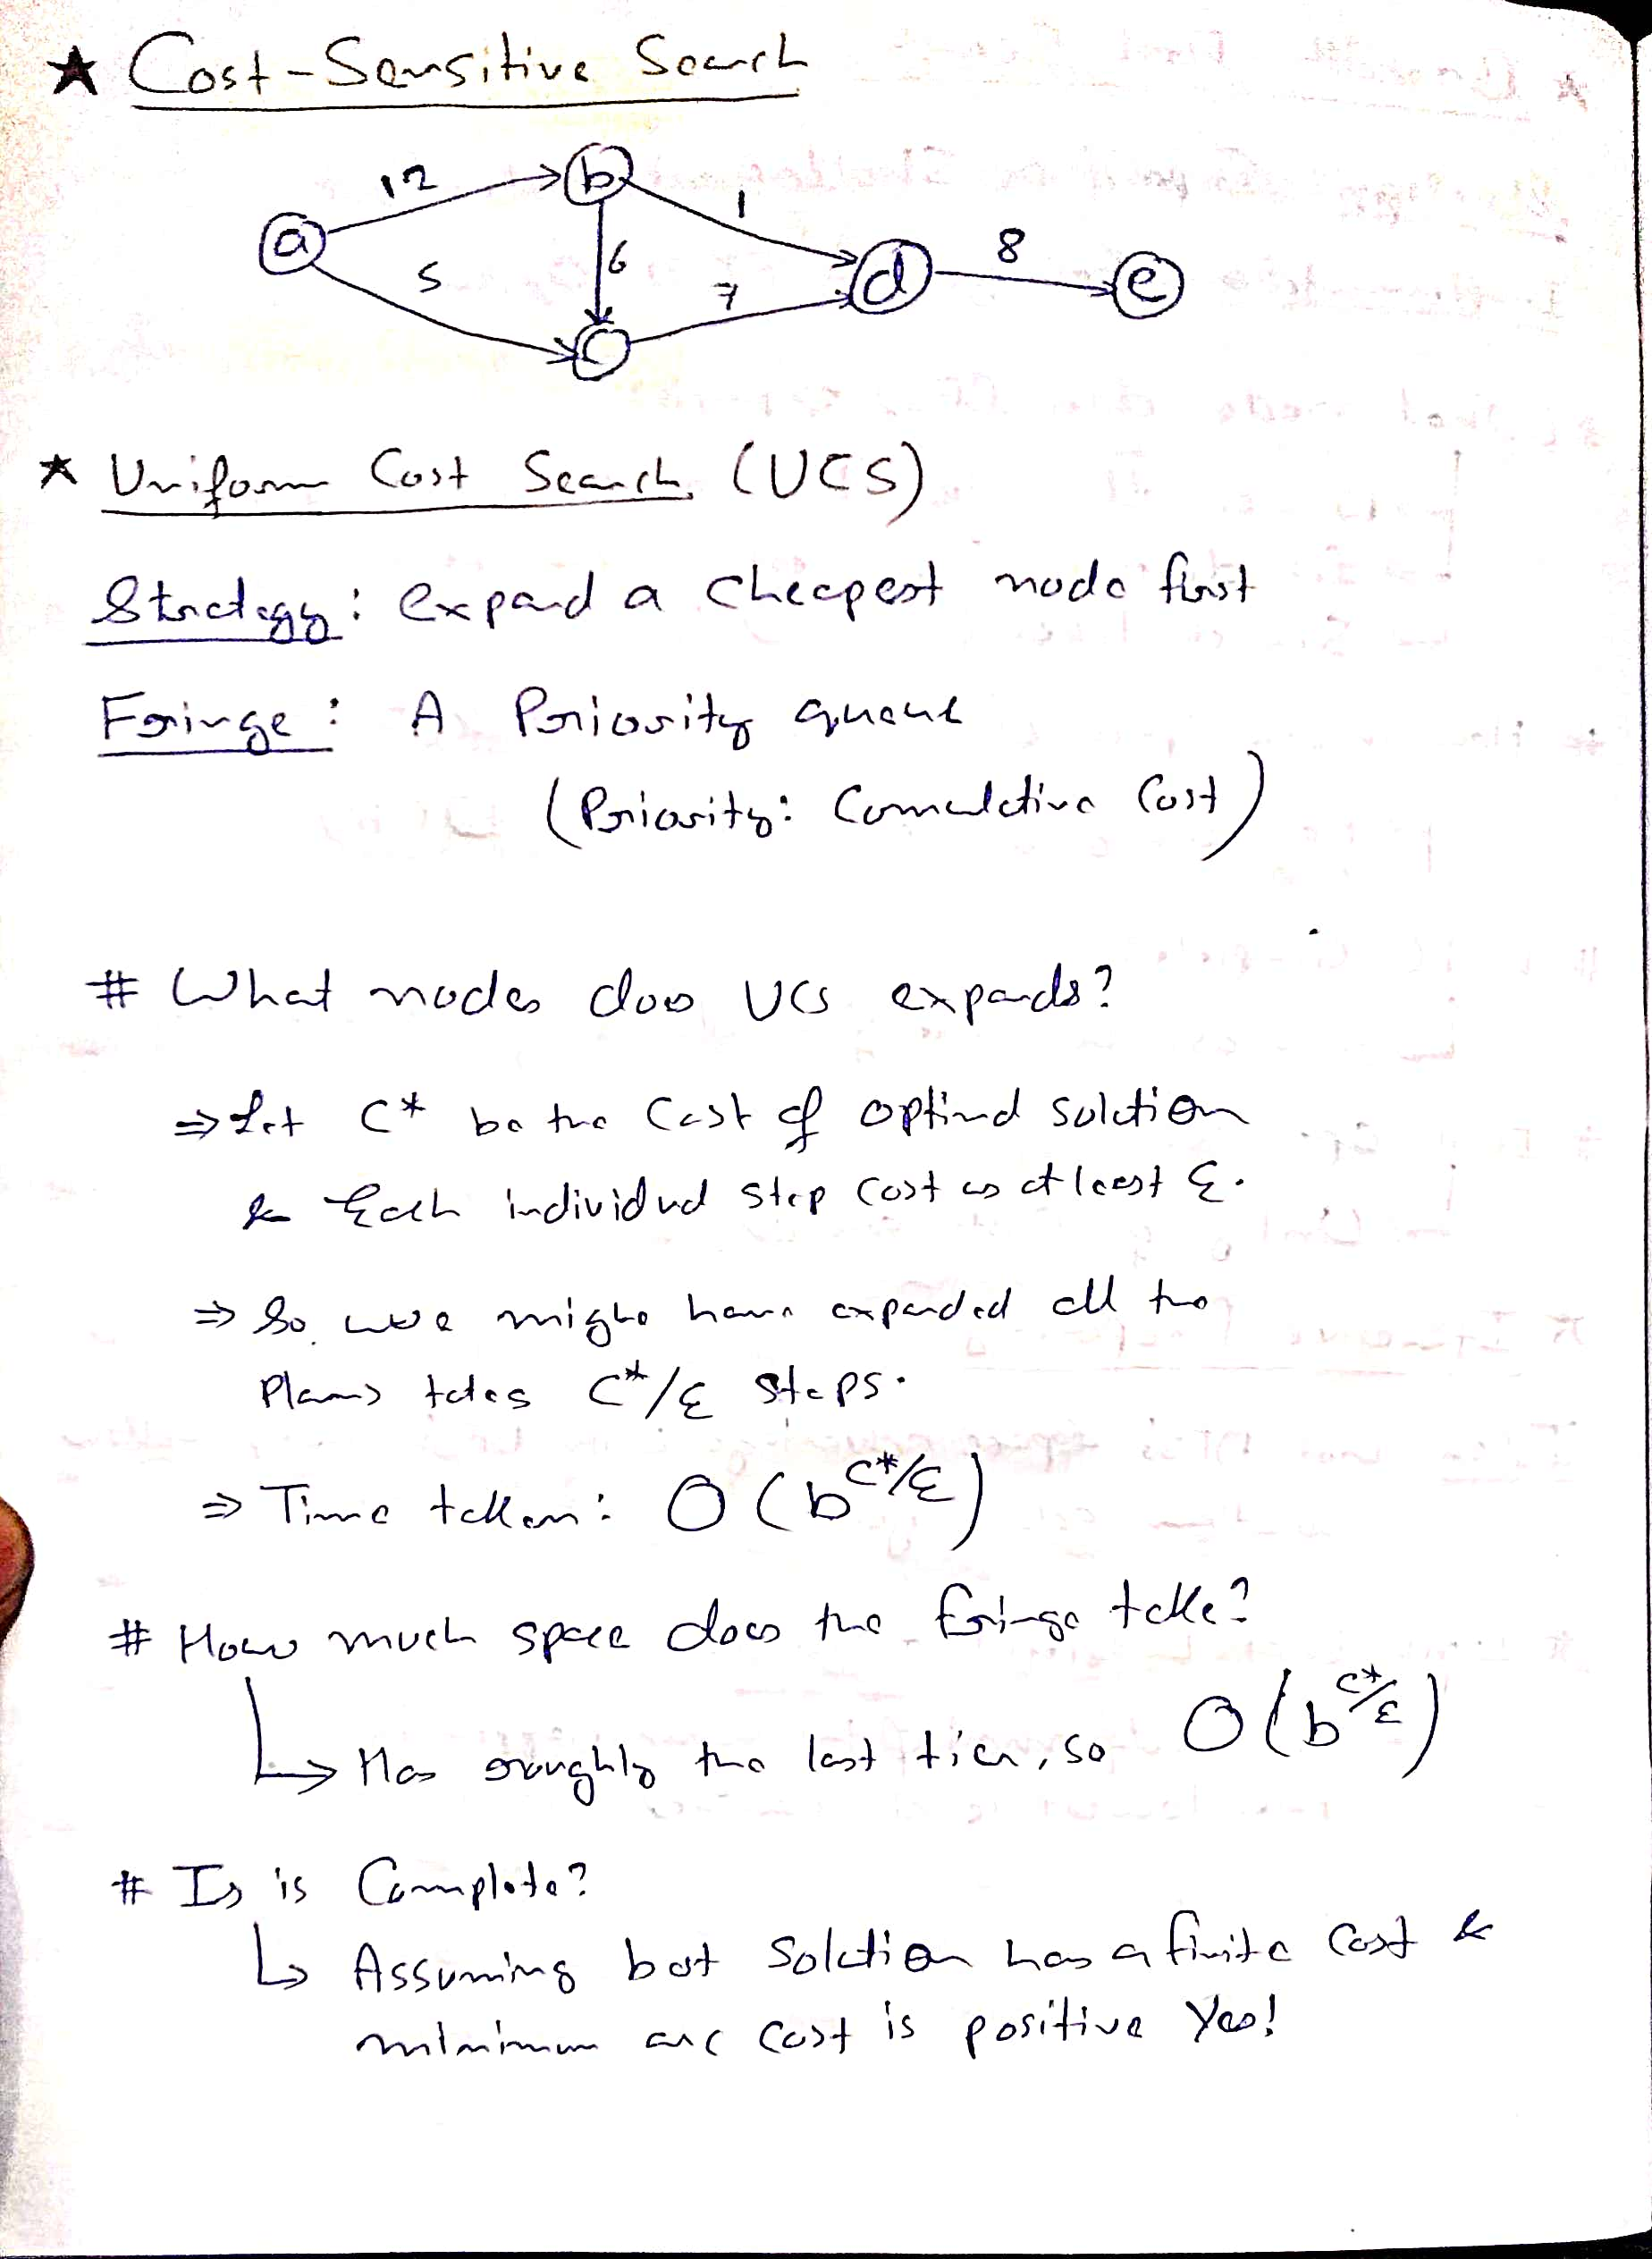 ★ Cost-Sensitive Search
a 12 b 1 d 8 e
5 6 7 c
★ Uniform Cost Search (UCS)
Strategy: expand a cheapest node first
Fringe: A Priority queue
(Priority: Comulative Cost)
# What nodes does UCS expands?
⇒ Let C* be the Cost of optimal solution
& Each individual step cost is at least ε.
⇒ So we might have expanded all the
Plans takes C*/ε steps.
⇒ Time taken: O(b^C*/ε)
# How much space does the fringe take?
↳ Has roughly the last tier, so O(b^C*/ε)
# Is is Complete?
↳ Assuming best Solution has a finite Cost &
minimum arc cost is positive Yes!